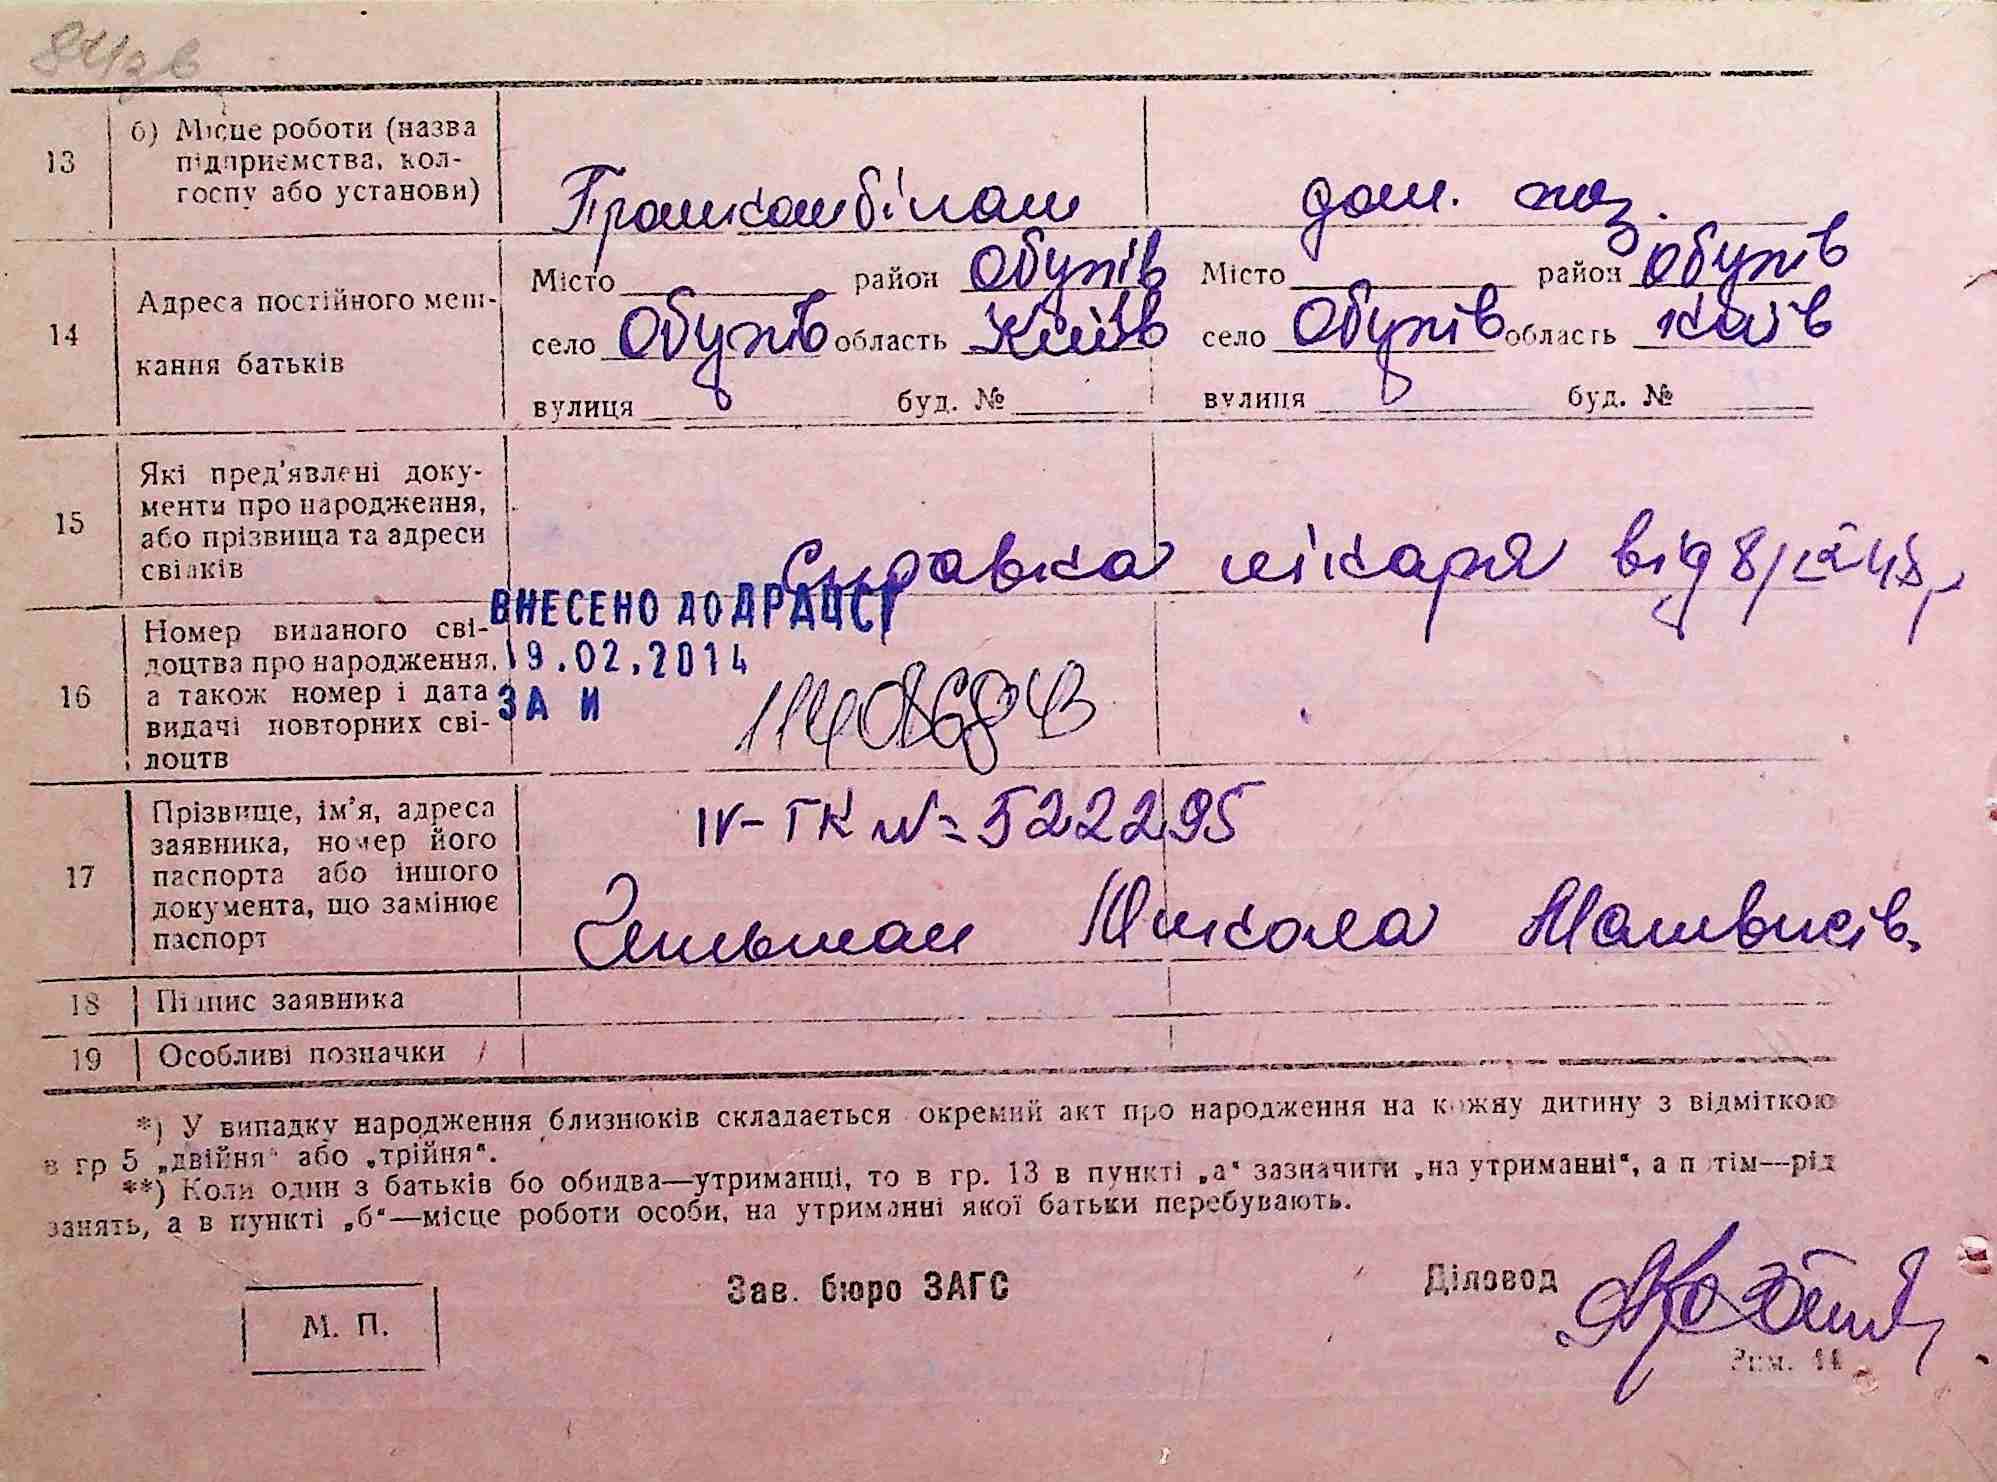 13
б) Місце роботи (назва
підприємства, кол-
госпу або установи)
Промкомбінат
дом. хаз.
14
Адреса постійного меш-
кання батьків
Місто район Обухів
село Обухів область Київ
вулиця буд. №
Місто район Обухів
село Обухів область Київ
вулиця буд. №
15
Які пред'явлені доку-
менти про народження,
або прізвища та адреси
свідків
Справка лікаря від 8/
16
Номер виданого сві-
доцтва про народження,
а також номер і дата
видачі повторних сві-
доцтв
ВНЕСЕНО ДО ДРАЦСГ
19.02.2014
ЗА И
17
Прізвище, ім'я, адреса
заявника, номер його
паспорта або іншого
документа, що замінює
паспорт
IV-ГК № 522295
Микола Матвиєв.
18
Підпис заявника
19
Особливі позначки
*) У випадку народження близнюків складається окремий акт про народження на кожну дитину з відміткою
в гр 5 „двійня“ або „трійня“.
**) Коли один з батьків бо обидва—утриманці, то в гр. 13 в пункті „а“ зазначити „на утриманні“, а потім—рід
занять, а в пункті „б“—місце роботи особи, на утриманні якої батьки перебувають.
М. П.
Зав. бюро ЗАГС
Діловод